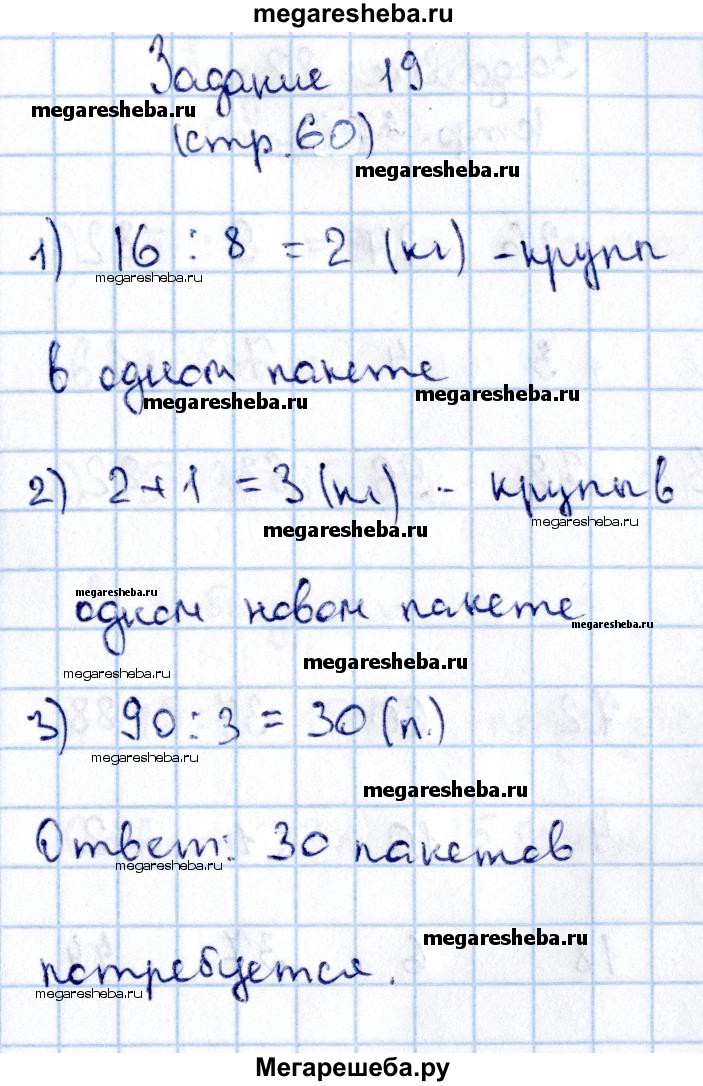 megaresheba.ru
Задание 19
megaresheba.ru
(стр. 60)
megaresheba.ru
1) 16 : 8 = 2 (кг) - крупы
megaresheba.ru
в одном пакете
megaresheba.ru
megaresheba.ru
2) 2 + 1 = 3 (кг) - крупы в
megaresheba.ru
megaresheba.ru
megaresheba.ru
одном новом пакете
megaresheba.ru
megaresheba.ru
megaresheba.ru
3) 90 : 3 = 30 (п.)
megaresheba.ru
megaresheba.ru
Ответ: 30 пакетов
megaresheba.ru
megaresheba.ru
потребуется.
megaresheba.ru
Мегарешеба.ру